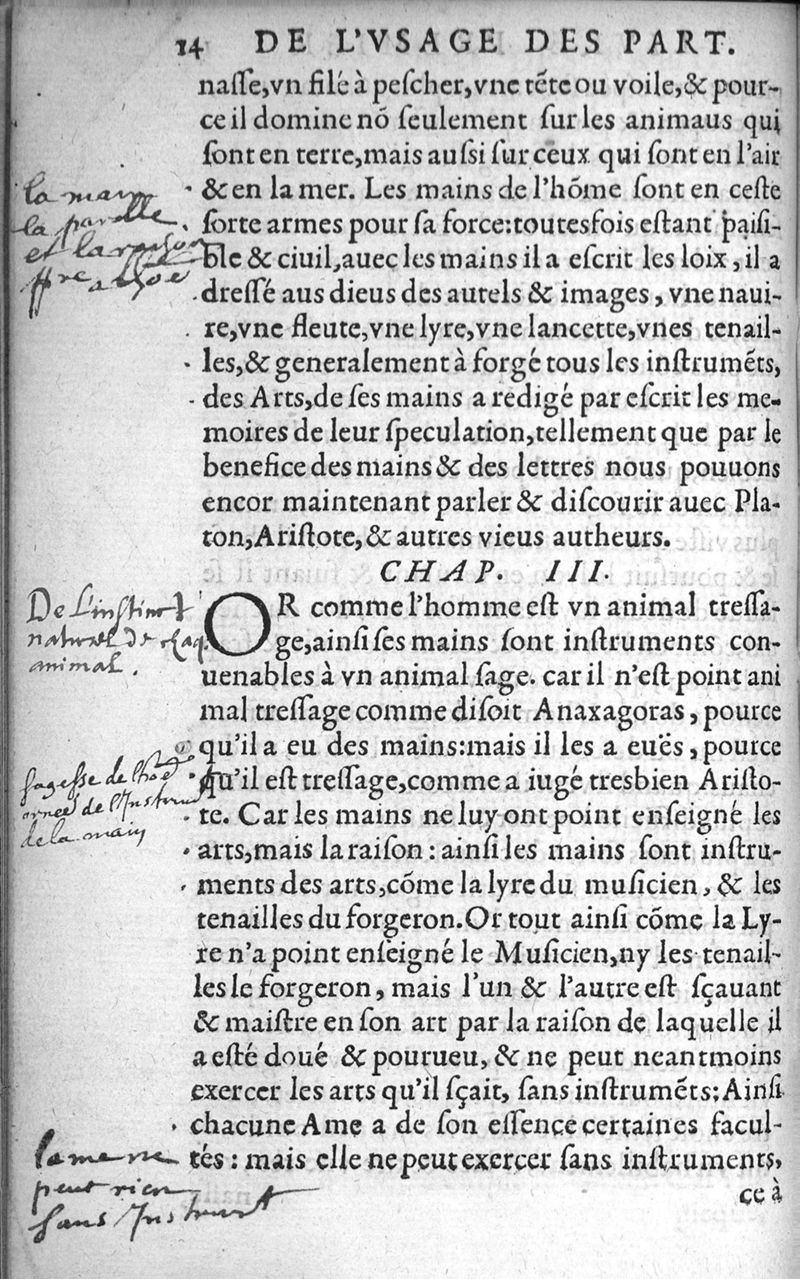 14 DE L'VSAGE DES PART.
naſſe,vn filé à peſcher,vne tẽte ou voile,& pour-
ce il domine nõ ſeulement ſur les animaus qui
ſont en terre,mais auſsi ſur ceux qui ſont en l'air
& en la mer. Les mains de l'hõme ſont en ceſte
ſorte armes pour ſa force:toutesfois eſtant paiſi-
ble & ciuil,auec les mains il a eſcrit les loix, il a
dreſſé aus dieus des autels & images, vne naui-
re,vne fleute,vne lyre,vne lancette,vnes tenail-
les,& generalement à forgé tous les inſtrumẽts,
des Arts,de ſes mains a redigé par eſcrit les me-
moires de leur ſpeculation,tellement que par le
benefice des mains & des lettres nous pouuons
encor maintenant parler & diſcourir auec Pla-
ton,Ariſtote,& autres vieus autheurs.
la main
la parolle
et la raison
CHAP. III.
OR comme l'homme eſt vn animal treſſa-
ge,ainſi ſes mains ſont inſtruments con-
uenables à vn animal ſage. car il n'eſt point ani
mal treſſage comme diſoit Anaxagoras, pource
qu'il a eu des mains:mais il les a euës, pource
qu'il eſt treſſage,comme a iugé tresbien Ariſto-
te. Car les mains ne luy ont point enſeigné les
arts,mais la raiſon : ainſi les mains ſont inſtru-
ments des arts,cõme la lyre du muſicien, & les
tenailles du forgeron.Or tout ainſi cõme la Ly-
re n'a point enſeigné le Muſicien,ny les tenail-
les le forgeron, mais l'un & l'autre eſt ſçauant
& maiſtre en ſon art par la raiſon de laquelle il
a eſté doué & pourueu, & ne peut neantmoins
exercer les arts qu'il ſçait, ſans inſtrumẽts; Ainſi
chacune Ame a de ſon eſſence certaines facul-
tés : mais elle ne peut exercer ſans inſtruments,
ce à
De L'instinct
naturel de chaq.
animal.
sagesse de
ornee de l'Instru
de la main
lame ne
peut rien
sans Instru